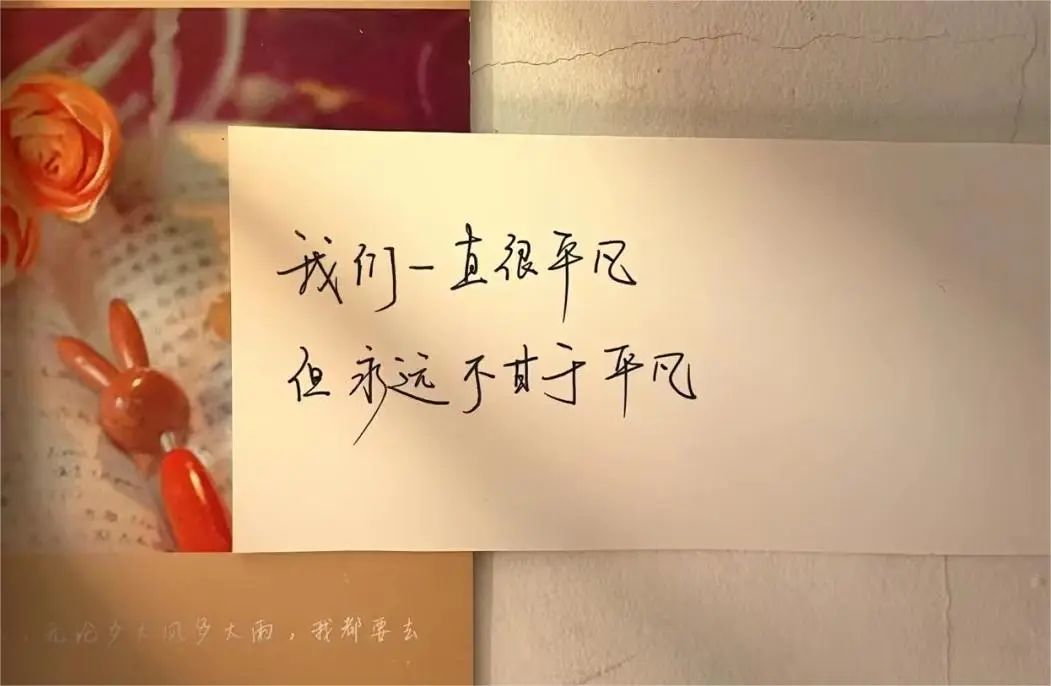 我们一直很平凡
但永远不甘于平凡
，无论多大风多大雨，我都要去